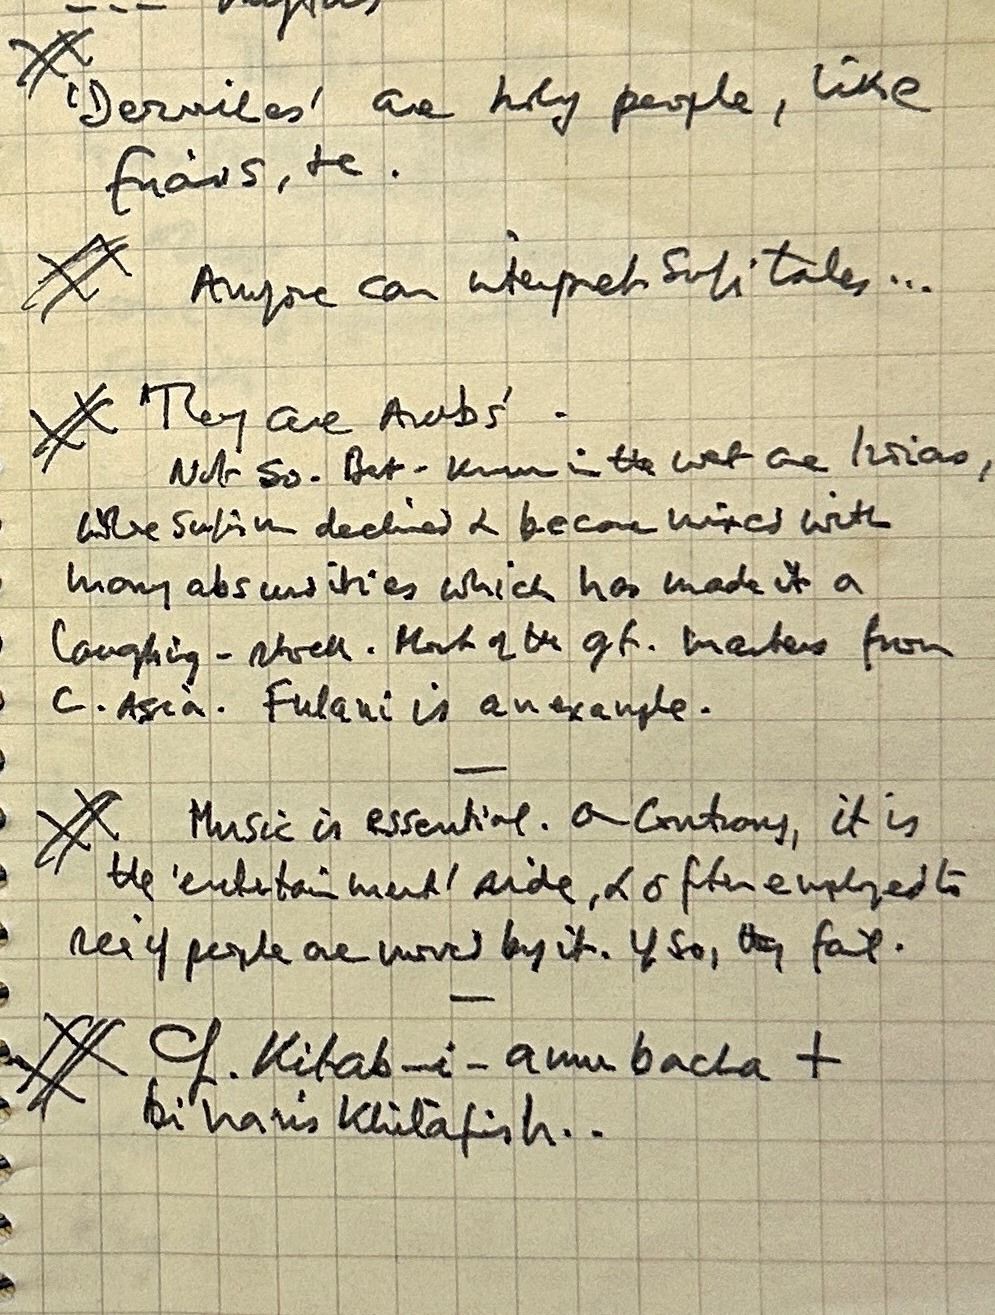 'Dervishes' are holy people, like
friars, etc.
Anyone can interpret Sufi tales...
'They are Arabs'.
Not so. Best-known in the west are
where Sufism declined & became mixed with
many absurdities which has made it a
laughing-stock. Most of the gt. masters from
C. Asia. Fulani is an example.
—
Music is essential. On contrary, it is
the 'entertainment' side, & often employed to
see if people are moved by it. If so, they fail.
—
Cf. Kitab-i-amu bacha +